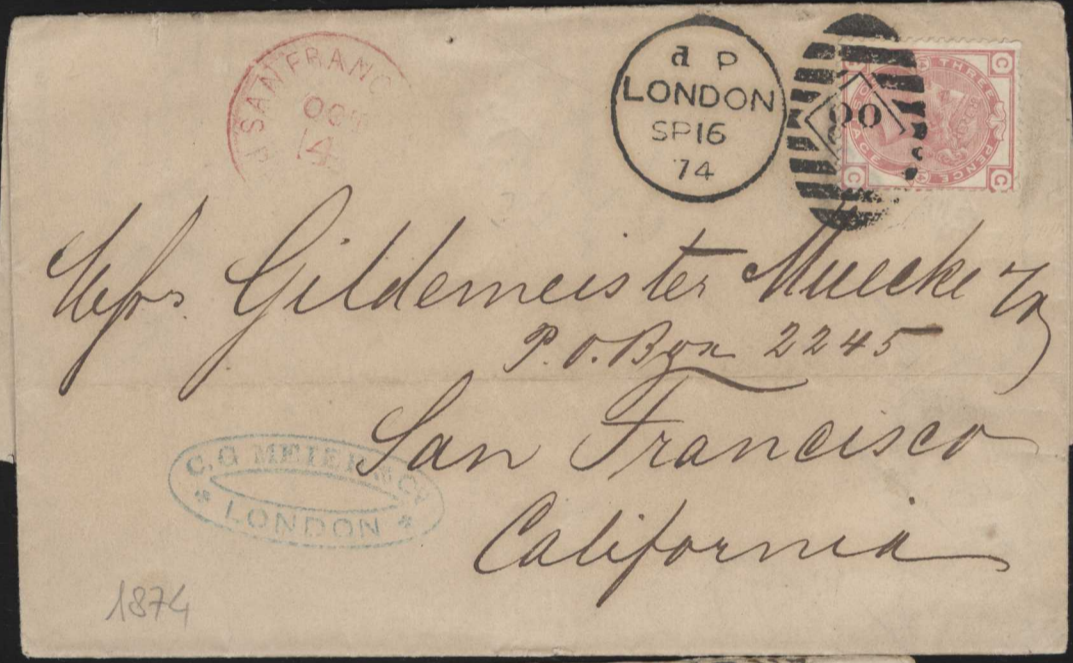 SAN FRANC
OCT
14
a P
LONDON
SP 16
74
00
THREE PENCE
C C
C C
Messrs Gildemeister Muecke & Co
P.O. Box 2245
San Francisco
California
C. G. MEIER & Co
* LONDON *
1874